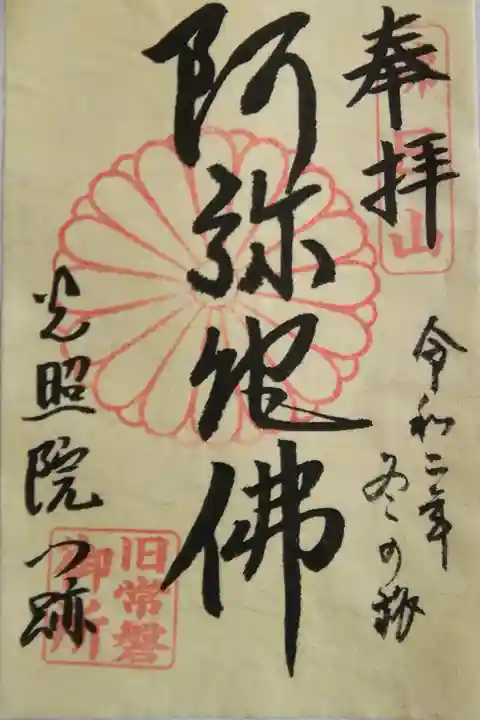 奉拝
令和二年
冬の旅
阿弥陀佛
光照院門跡
旧常磐
御所
山